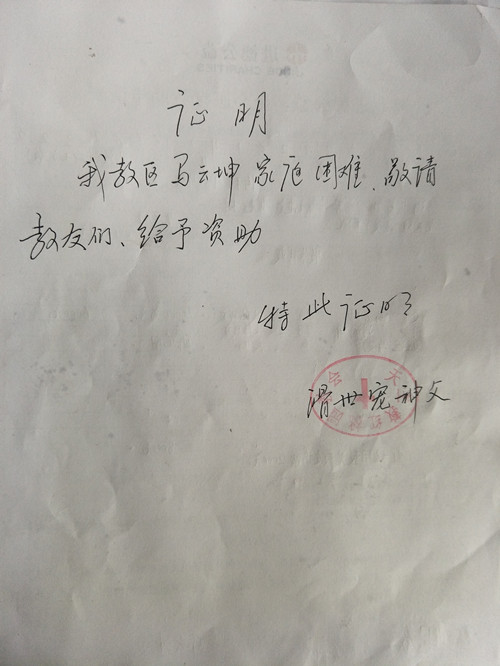 证明
我教区马云坤家庭困难、敬请
教友们、给予资助
特此证明
滑世宠神父